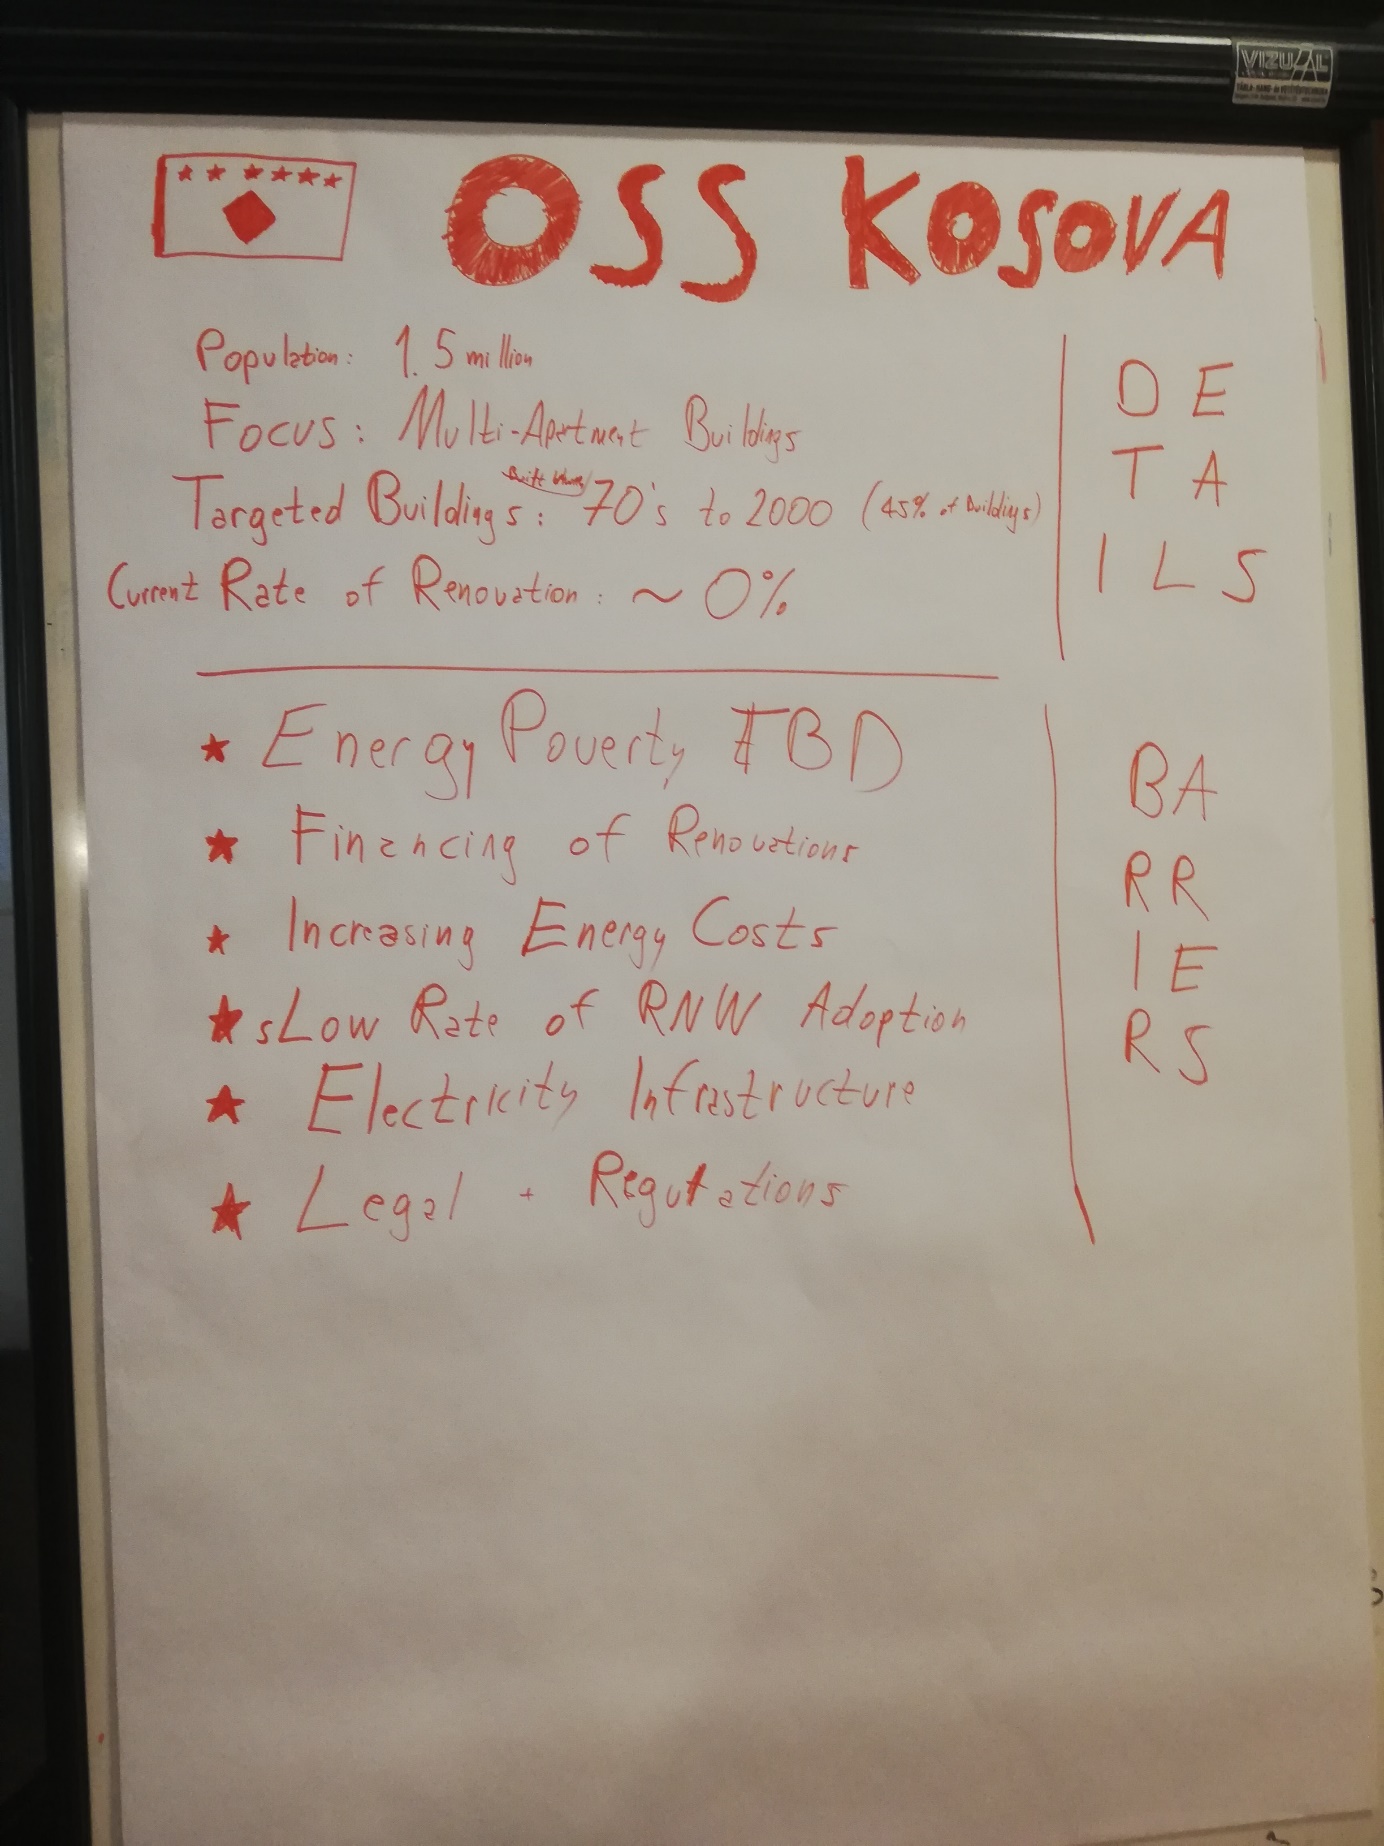 VIZUAL
OSS KOSOVA
Population: 1.5 million
Focus: Multi-Apartment Buildings
Built
Targeted Buildings: 70's to 2000 (45% of Buildings)
Current Rate of Renovation: ~ 0%
DE
TA
ILS
Energy Poverty TBD
Financing of Renovations
Increasing Energy Costs
sLow Rate of RNW Adoption
Electricity Infrastructure
Legal + Regulations
BA
RR
IE
RS